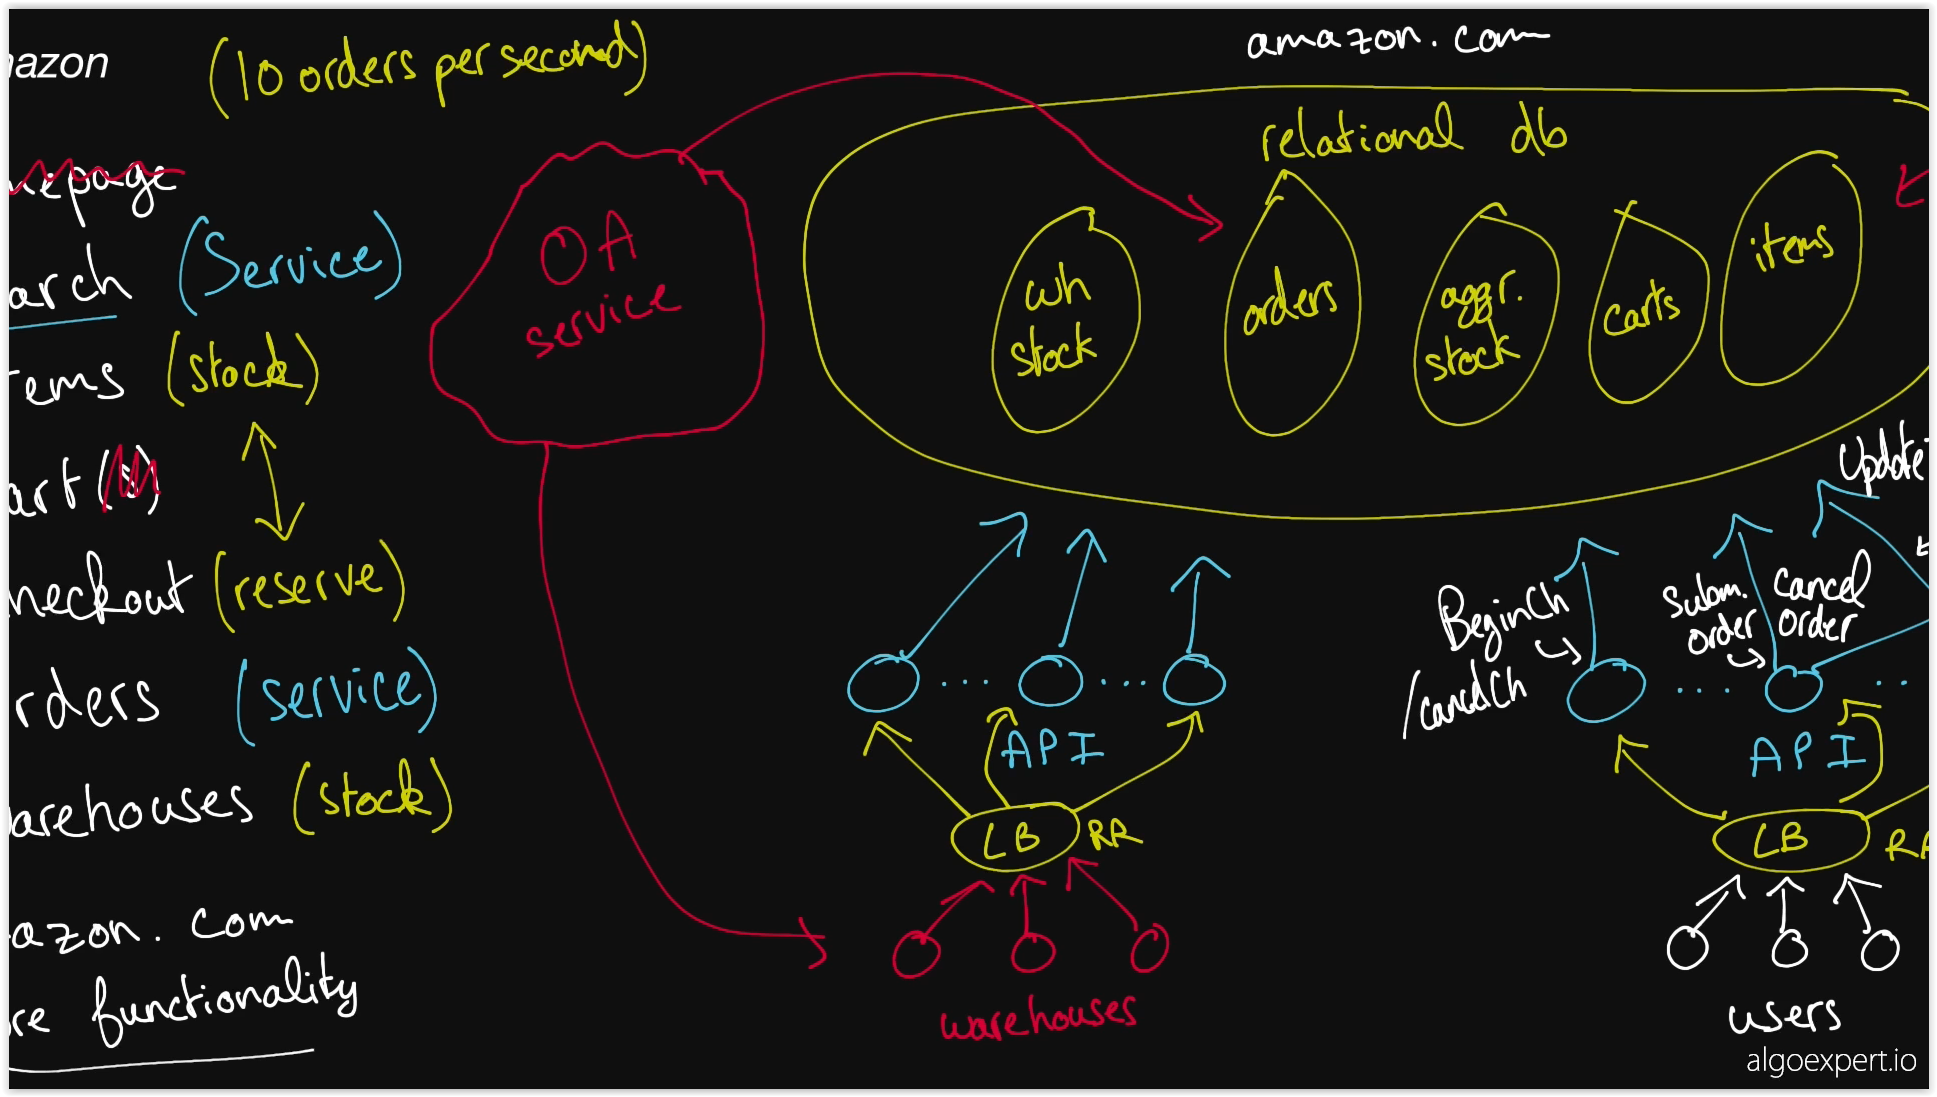 azon
(10 orders per second)
epage
arch (Service)
ems (stock)
art (s)
heckout (reserve)
rders (service)
arehouses (stock)
azon.com
re functionality
OA
service
amazon.com
relational db
wh
stock
orders
aggr.
stock
carts
items
API
LB RR
warehouses
Update
BeginCh
/cancelCh
Subm.
order
Cancel
order
API
LB RR
users
algoexpert.io